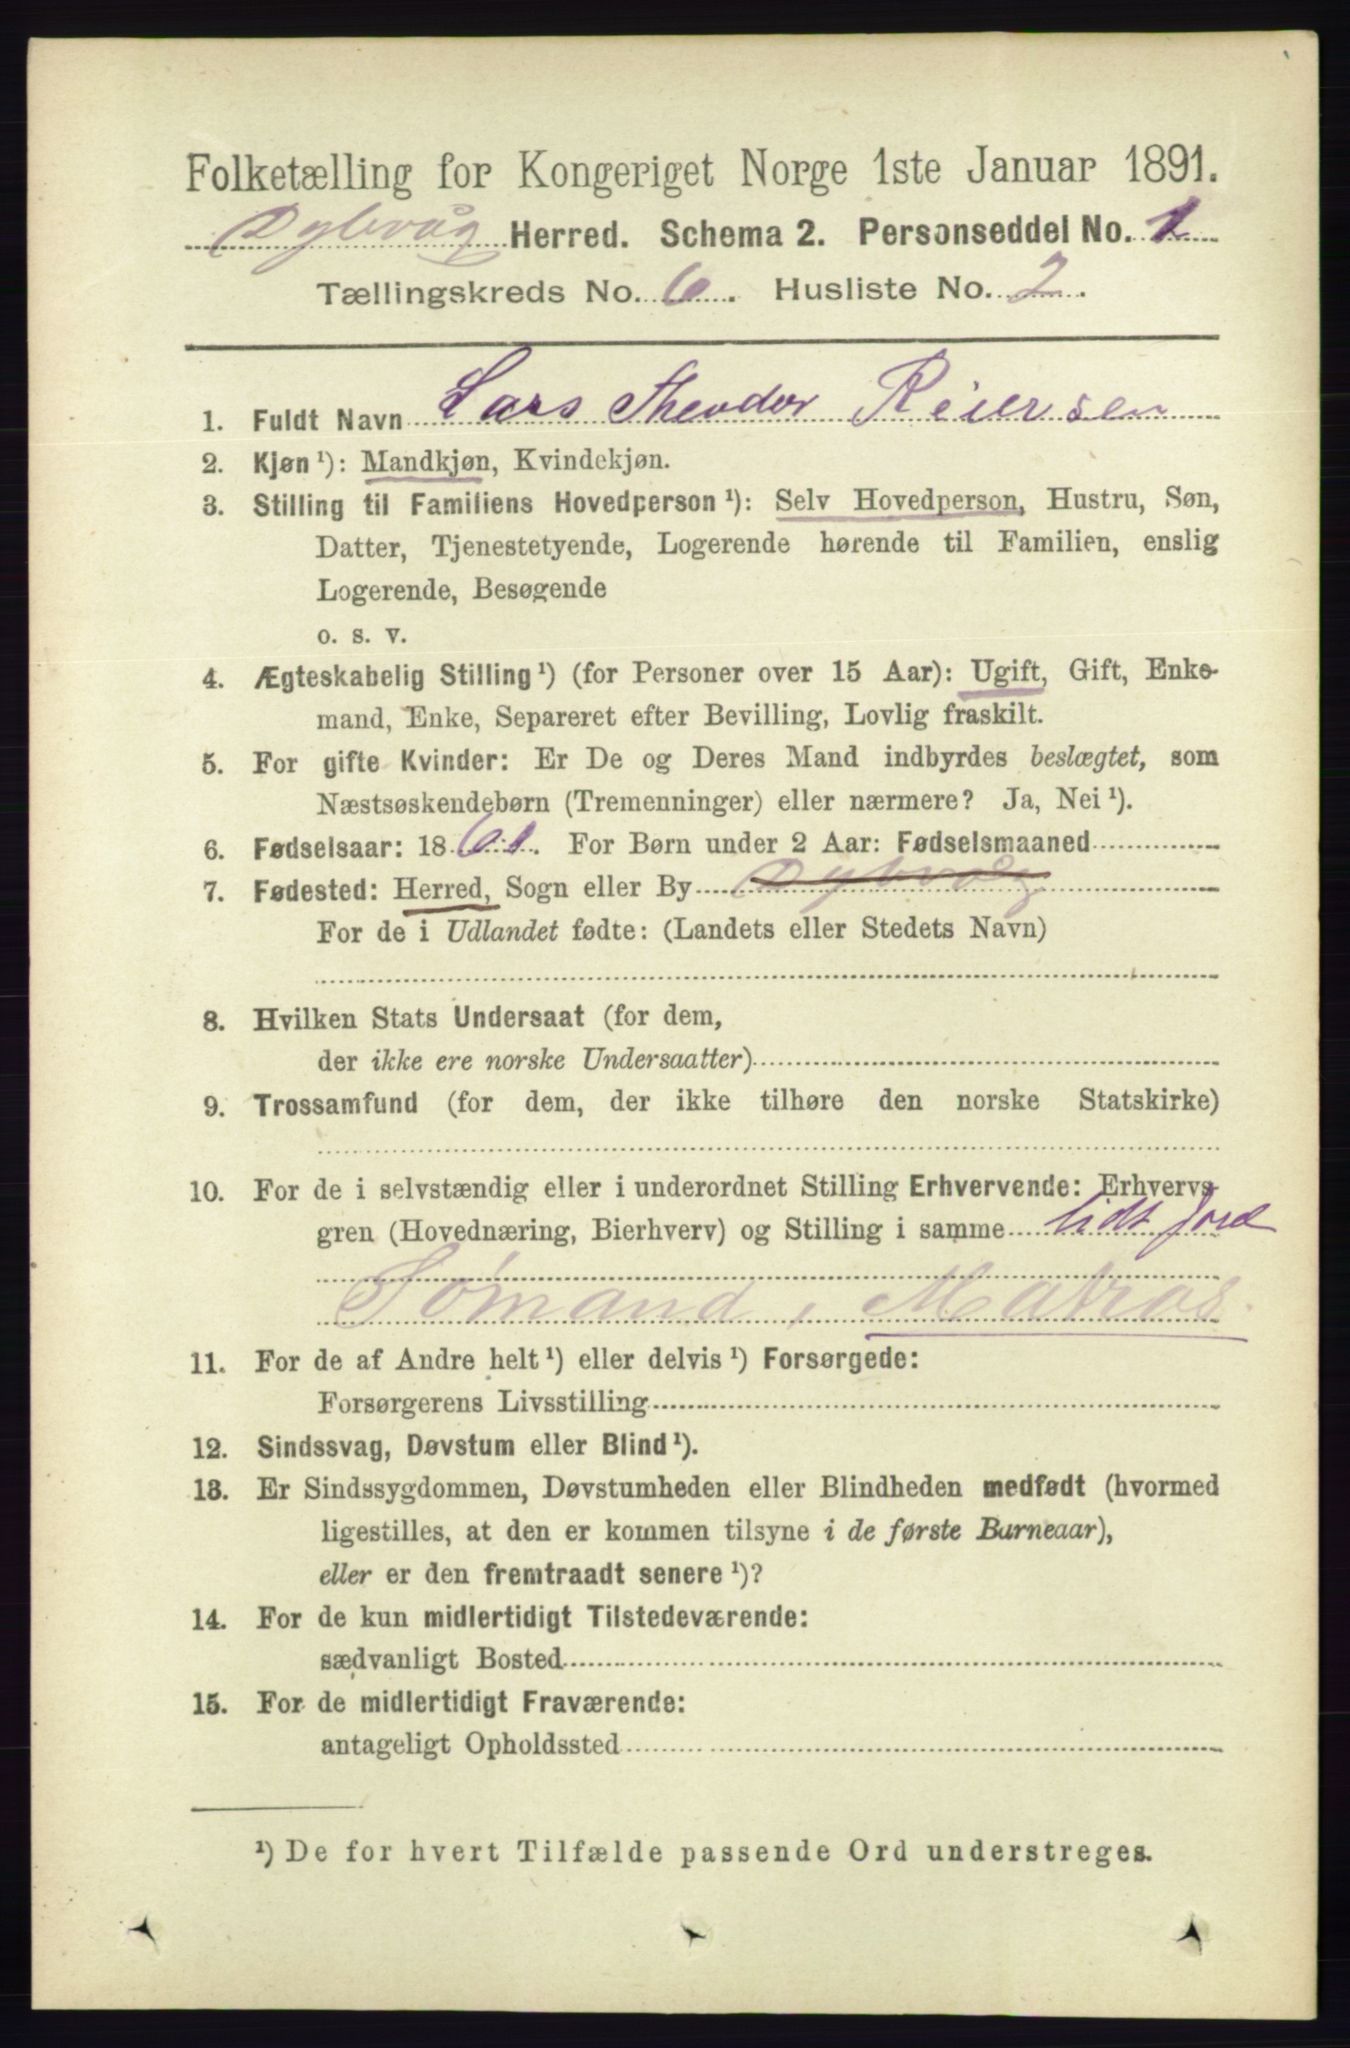 Folketælling for Kongeriget Norge 1ste Januar 1891.
Dybvåg Herred. Schema 2. Personseddel No. 1
Tællingskreds No. 6. Husliste No. 2.
1. Fuldt Navn Lars Theodor Reiersen
2. Kjøn ¹): Mandkjøn, Kvindekjøn.
3. Stilling til Familiens Hovedperson ¹): Selv Hovedperson, Hustru, Søn,
Datter, Tjenestetyende, Logerende hørende til Familien, enslig
Logerende, Besøgende
o. s. v.
4. Ægteskabelig Stilling ¹) (for Personer over 15 Aar): Ugift, Gift, Enke-
mand, Enke, Separeret efter Bevilling, Lovlig fraskilt.
5. For gifte Kvinder: Er De og Deres Mand indbyrdes beslægtet, som
Næstsøskendebørn (Tremenninger) eller nærmere? Ja, Nei ¹).
6. Fødselsaar: 1861. For Børn under 2 Aar: Fødselsmaaned
7. Fødested: Herred, Sogn eller By Dybvåg
For de i Udlandet fødte: (Landets eller Stedets Navn)
8. Hvilken Stats Undersaat (for dem,
der ikke ere norske Undersaatter)
9. Trossamfund (for dem, der ikke tilhøre den norske Statskirke)
10. For de i selvstændig eller i underordnet Stilling Erhvervende: Erhvervs-
gren (Hovednæring, Bierhverv) og Stilling i samme lidt jord
Sømand, Matros.
11. For de af Andre helt ¹) eller delvis ¹) Forsørgede:
Forsørgerens Livsstilling
12. Sindssvag, Døvstum eller Blind ¹).
13. Er Sindssygdommen, Døvstumheden eller Blindheden medfødt (hvormed
ligestilles, at den er kommen tilsyne i de første Barneaar),
eller er den fremtraadt senere ¹)?
14. For de kun midlertidigt Tilstedeværende:
sædvanligt Bosted
15. For de midlertidigt Fraværende:
antageligt Opholdssted
¹) De for hvert Tilfælde passende Ord understreges.